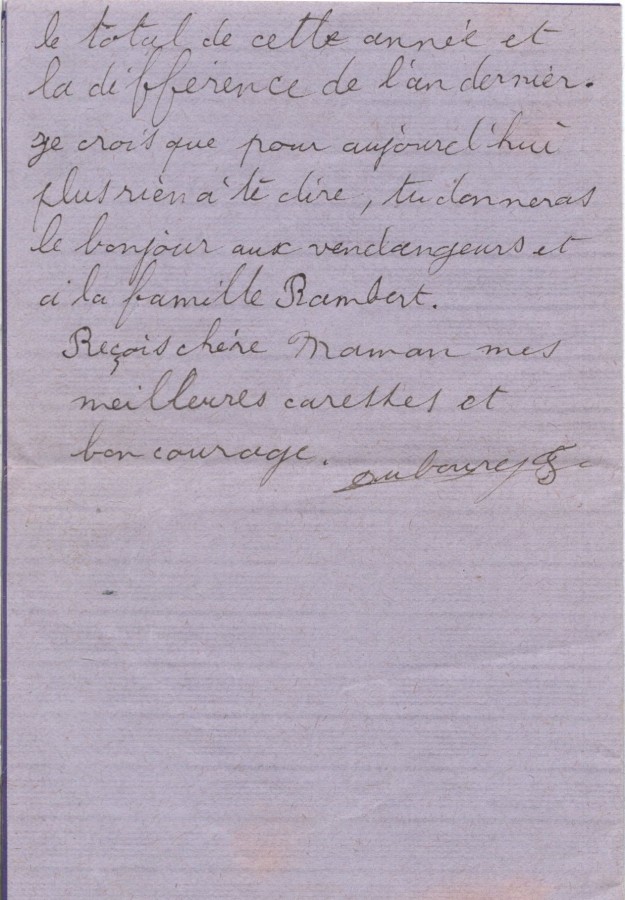 le total de cette année et
la différence de l'an dernier.
Je crois que pour aujourd'hui
plus rien à te dire, tu donneras
le bonjour aux vendangeurs et
à la famille Rambert.
Reçois chère Maman mes
meilleures caresses et
bon courage.